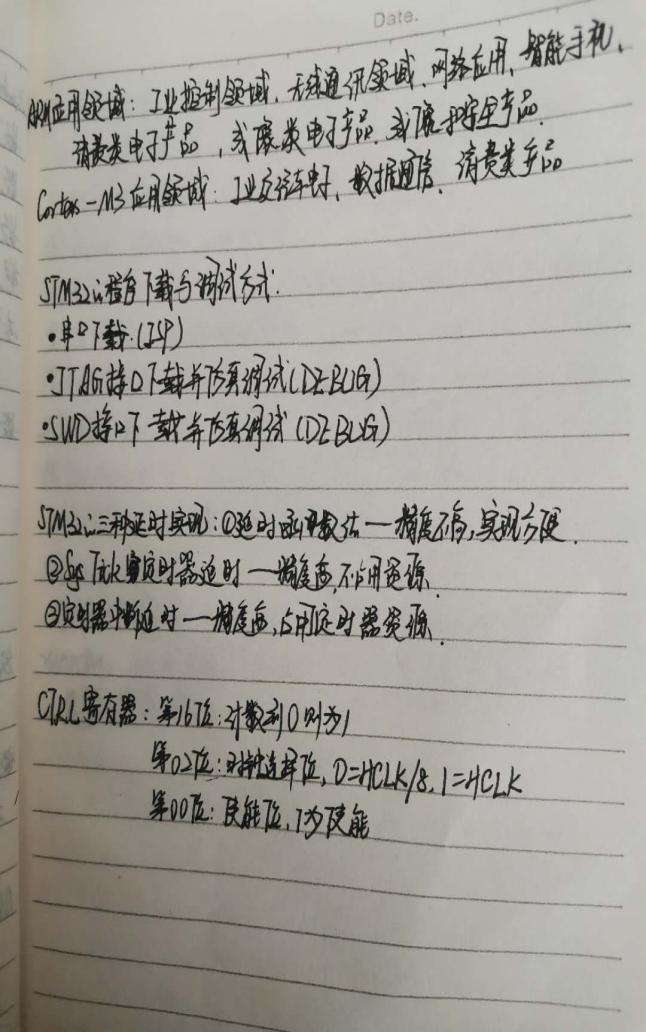 Date.
ARM应用领域：工业控制领域、无线通讯领域、网络应用、智能手机、
消费类电子产品，成像类电子产品、成像和安全产品.
Cortex-M3应用领域：工业及汽车电子、数据通信、消费类产品
STM32的程序下载与调试方式：
·串口下载(ISP)
·JTAG接口下载并仿真调试(DEBUG)
·SWD接口下载并仿真调试(DEBUG)
STM32的三种延时实现：①延时函数法——精度不高，实现方便.
②SysTick定时器延时——精度高，不占用资源.
③定时器中断延时——精度高，占用定时器资源.
CTRL寄存器：第16位：计数到0则为1
第02位：时钟选择位，0=HCLK/8，1=HCLK
第00位：使能位，1为使能